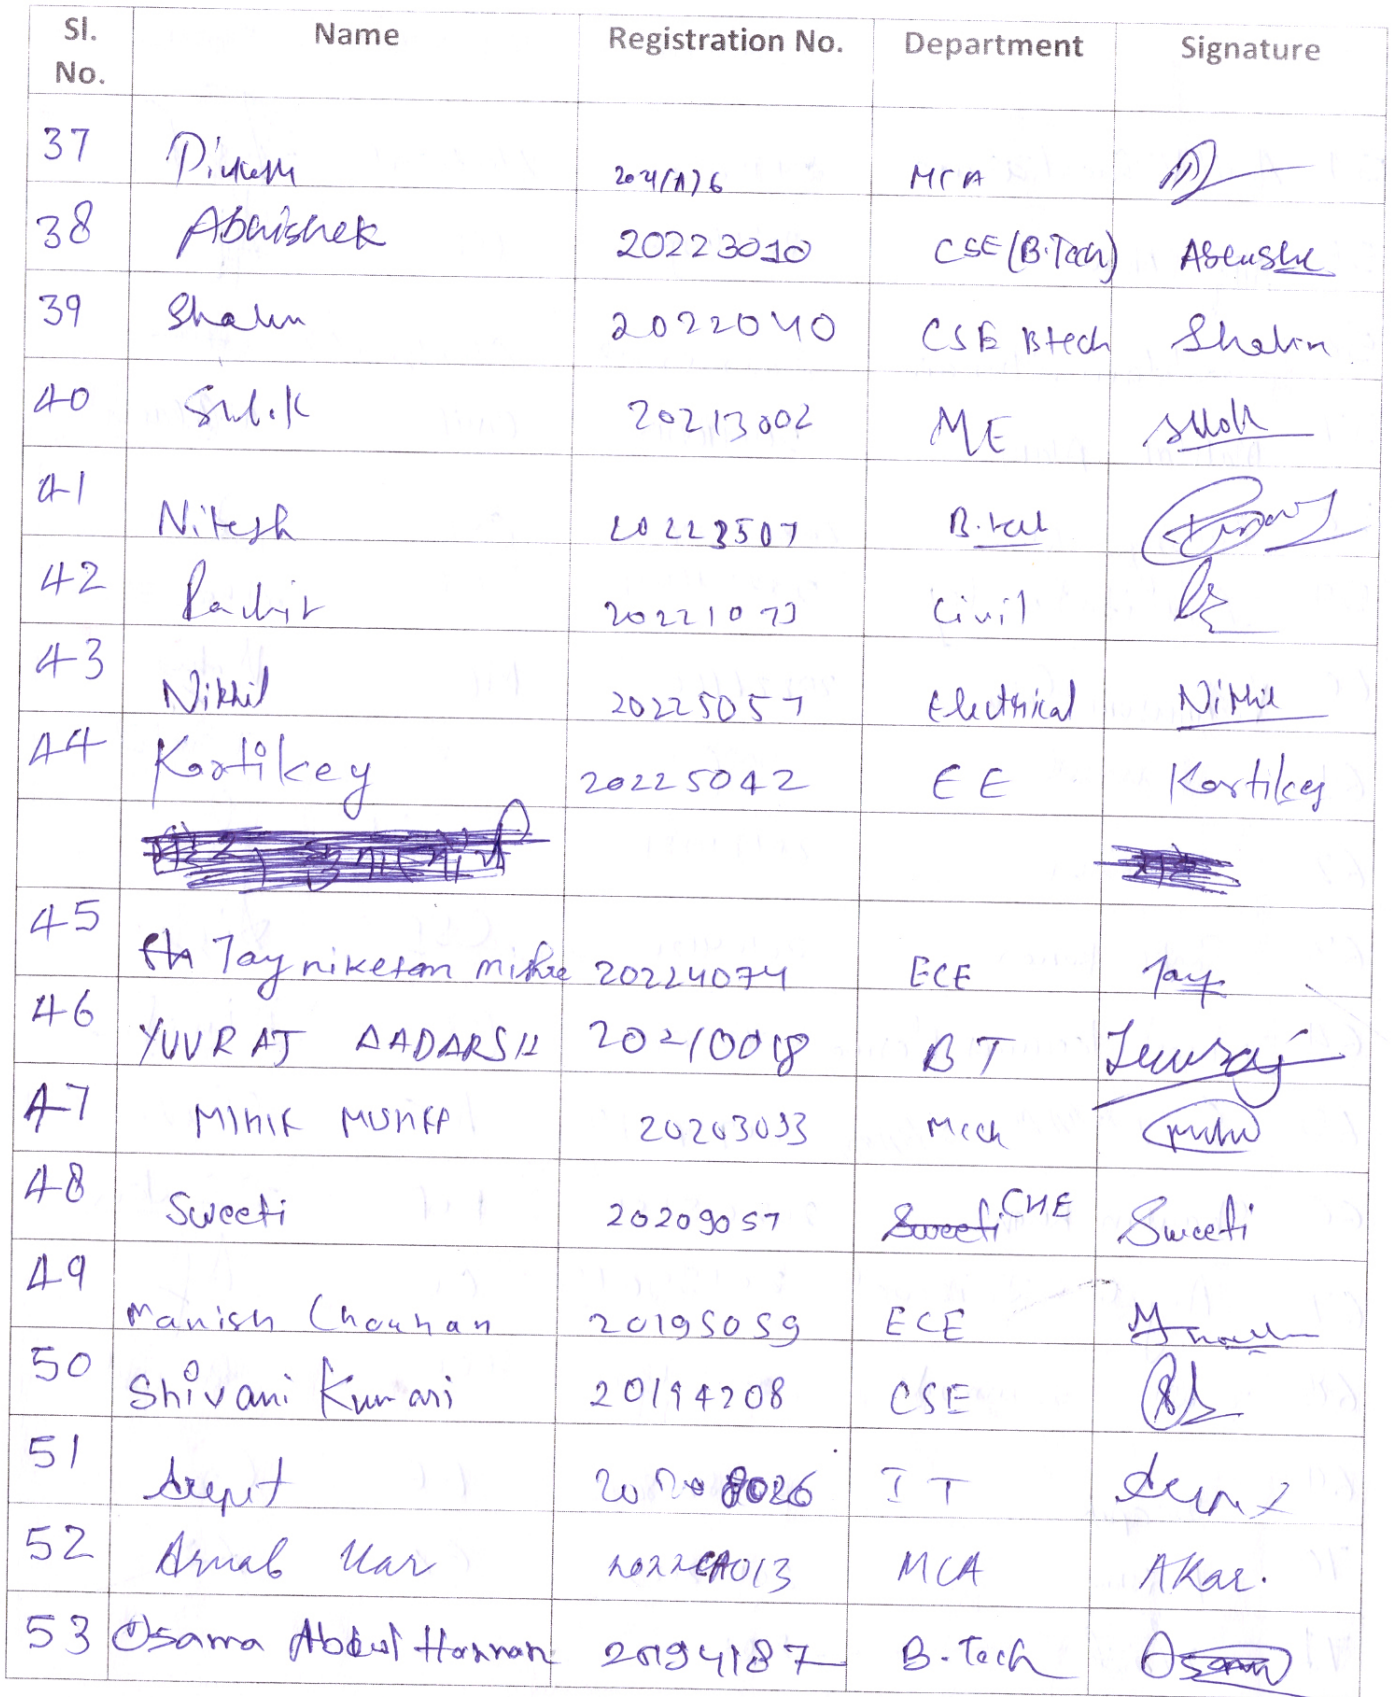 Sl. No. Name Registration No. Department Signature
37 MCA
38 Abhishek 20223010 CSE (B.Tech)
39 Shalin 2022040 CSE Btech Shalin
40 20213002 ME
41 Nitesh 20223507 B.tech
42 Rachit 20221073 Civil
43 Nikhil 20225057 Electrical Nikhil
44 Kartikey 20225042 EE Kartikey
45 Jayniketan mishra 20224074 ECE Jay
46 YUVRAJ AADARSH 20210018 BT Yuvraj
47 20203093 Mech
48 Sweeti 20209057 Sweeti CHE Sweeti
49 Manish Chouhan 20195059 ECE
50 Shivani Kumari 20194208 CSE
51 Arpit IT Arpit
52 Arnab Kar 2022CA013 MCA AKar.
53 Osama Abdul Hannan 20194187 B.Tech Osama